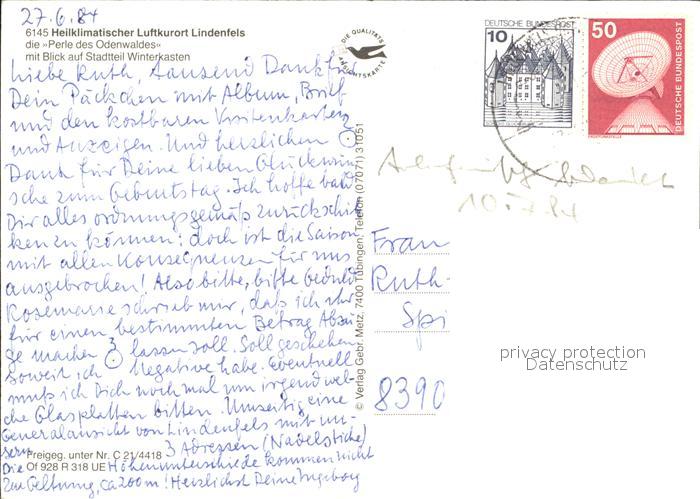 27.6.84
6145 Heilklimatischer Luftkurort Lindenfels
die »Perle des Odenwaldes«
mit Blick auf Stadtteil Winterkasten
Liebe Ruth, tausend Dank für
Dein Päckchen mit Album, Brief
und den kostbaren Visitenkarten
und Anzeigen. Und herzlichen
Dank für Deine lieben Glückwün-
sche zum Geburtstag. Ich hoffe bald
Dir alles ordnungsgemäß zurückschik-
ken zu können: doch ist die Saison
mit allen Konsequenzen für uns
ausgebrochen! Also bitte, bitte Geduld
Rosemarie schrieb mir, daß ich ihr
für einen bestimmten Betrag Abzü-
ge machen lassen soll. Soll geschehen
soweit ich Negative habe. Eventuell
muß ich Dich noch mal um irgend wel-
che Glasplatten bitten. Umseitig eine
Generalansicht von Lindenfels mit un-
sern 3 Adressen (Nadelstiche)
Freigeg. unter Nr. C 21/4418
Die Höhenunterschiede kommen nicht
Of 928 R 318 UE
zur Geltung, ca 200m! Herzlichst Deine Ingeborg
DIE QUALITÄTS
ANSICHTSKARTE
© Verlag Gebr. Metz, 7400 Tübingen, Telefon (07071) 31051
DEUTSCHE BUNDESPOST
10
50
DEUTSCHE BUNDESPOST
ERDFUNKSTELLE
10.7.84
Frau
Ruth
Spi
8390
privacy protection
Datenschutz